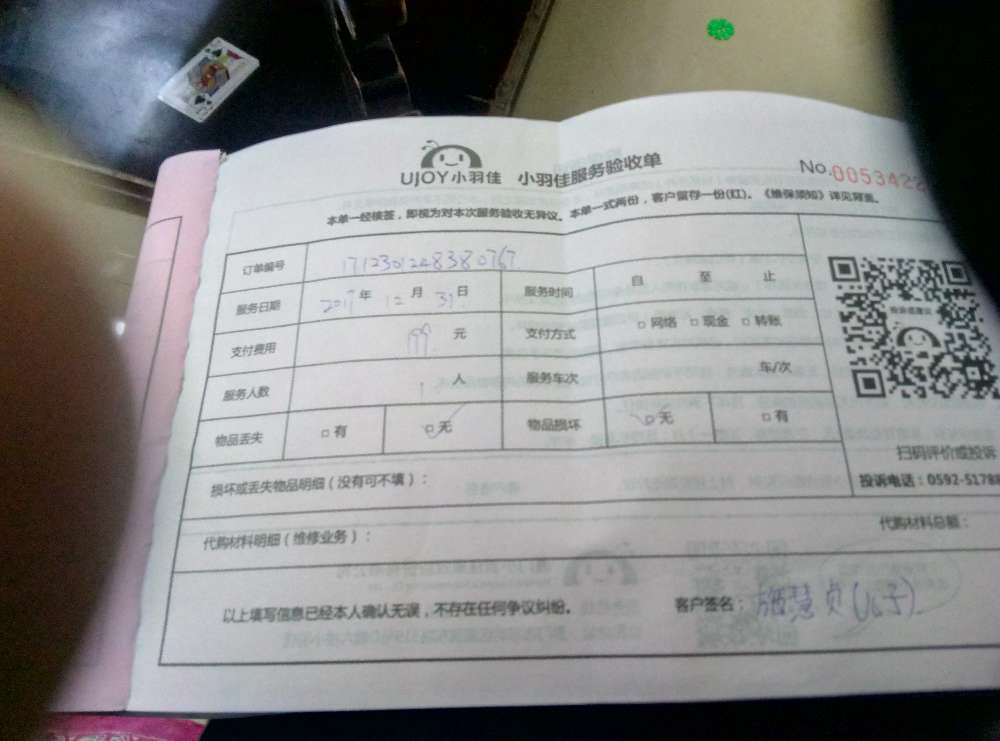 UJOY小羽佳 小羽佳服务验收单
No.0053422
本单一经核签，即视为对本次服务验收无异议。本单一式两份，客户留存一份(红)。《维保须知》详见背面。
订单编号 1712301248380767
服务日期 2017年 12月 31日 服务时间 自 至 止
支付费用 元 支付方式 □网络 □现金 □转账
服务人数 1人 服务车次 车/次
物品丢失 □有 □无 物品损坏 □无 □有
扫码评价或投诉
损坏或丢失物品明细（没有可不填）：
投诉电话：0592-51788
代购材料明细（维修业务）：
代购材料总额：
以上填写信息已经本人确认无误，不存在任何争议纠纷。 客户签名：施慧贞